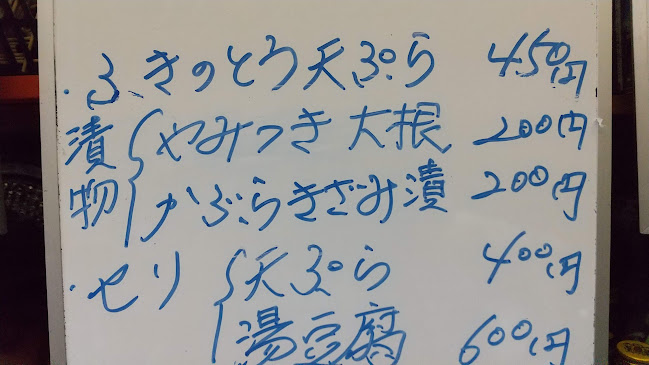 ・ふきのとう天ぷら 450円
漬物 やみつき大根 200円
かぶらきざみ漬 200円
・セリ 天ぷら 400円
湯豆腐 600円